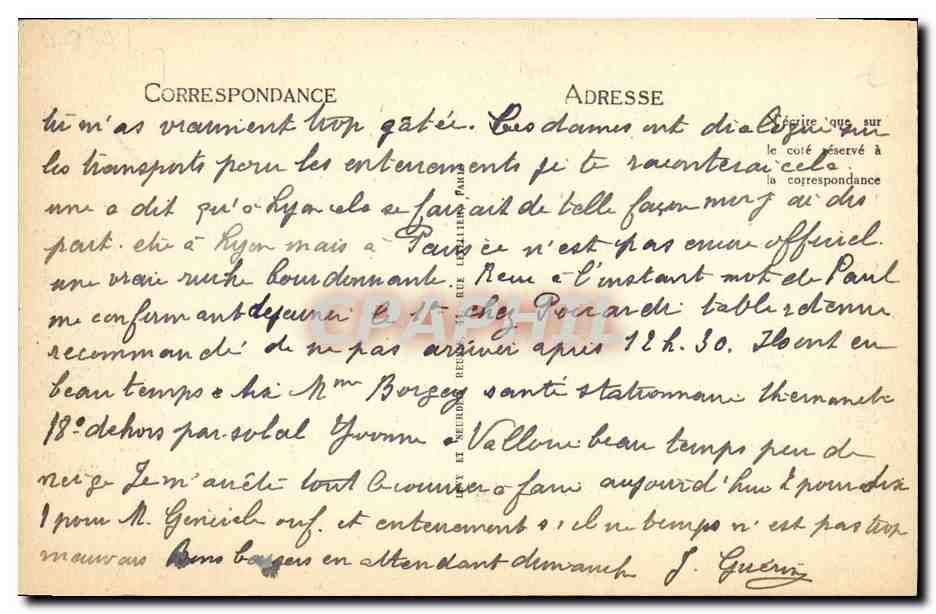 CORRESPONDANCE
ADRESSE
tu m'as vraiment trop gâtée. Les dames ont dialogué sur
N'écrire que sur
le coté réservé à
la correspondance
les transports pour les enterrements je te raconterai cela
une a dit qu'à Lyon cela se faisait de telle façon moi j'ai dis
part. etre à Lyon mais à Paris ce n'est pas encore officiel.
une vraie ruche bourdonnante. Recu à l'instant mot de Paul
me confirmant dejeuner le 1er chez Poirardi table retenue
recommandé de ne pas arriver après 12 h. 30. Ils ont eu
beau temps Aix Mme Borgey santé stationnaire
18° dehors par soleil Yvonne à Valloire beau temps peu de
neige Je m'arrête tout le courrier à faire aujourd'hui 2 pour Aix
1 pour M. ouf. et enterrement s'il ne temps n'est pas trop
mauvais Bons baisers en attendant dimanche J. Guérin
LEVY ET NEURDEIN REUNIS, 44, RUE LETELLIER, PARIS
CPAPHIL